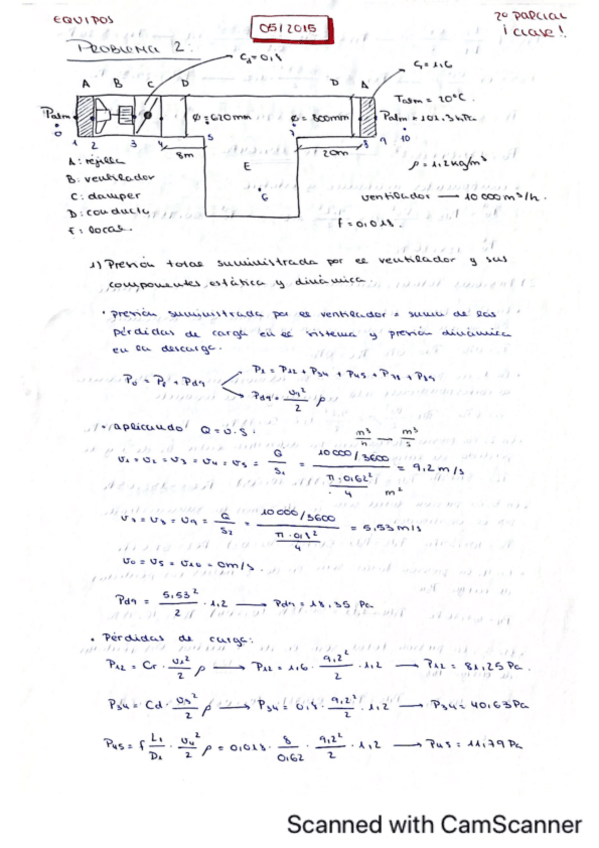 EQUIPOS
05/2015
2º PARCIAL
¡clase!
PROBLEMA 2:
Cd=0,8
Cr=1,6
A B C D D A
Patm
Ø=620mm
Ø=800mm
Tatm = 20ºC
Patm = 101.3 kPa
0
1 2 3 4 5 7 8 9 10
8m
20m
ρ=1,2kg/m³
E
6
A: rejilla
B: ventilador
C: damper
D: conducto
E: local
ventilador → 10000m³/h.
f=0,018.
1) Presión total suministrada por el ventilador y sus
componentes estática y dinámica.
• presión suministrada por el ventilador = suma de las
pérdidas de carga en el sistema y presión dinámica
en la descarga.
Pv = Pf + Pd9
Pf = P12 + P34 + P45 + P78 + P89
Pd9 = v9²/2 ρ
• aplicando Q=v·S.
m³/h → m³/s
v1=v2=v3=v4=v5= Q/S1 = (10000/3600)/(π·0,62²/4) = 9,2 m/s
m²
v7=v8=v9= Q/S2 = (10000/3600)/(π·0,8²/4) = 5,53m/s
v0=v5=v10=0m/s.
Pd9 = 5,53²/2 · 1,2 → Pd9 = 18,35 Pa
• Pérdidas de carga:
P12 = Cr · v2²/2 ρ → P12 = 1,6 · 9,2²/2 · 1,2 → P12 = 81,25 Pa.
P34 = Cd · v3²/2 ρ → P34 = 0,8 · 9,2²/2 · 1,2 → P34 = 40,63 Pa
P45 = f L1/D1 · v4²/2 ρ = 0,018 · 8/0,62 · 9,2²/2 · 1,2 → P45 = 11,79 Pa
Scanned with CamScanner